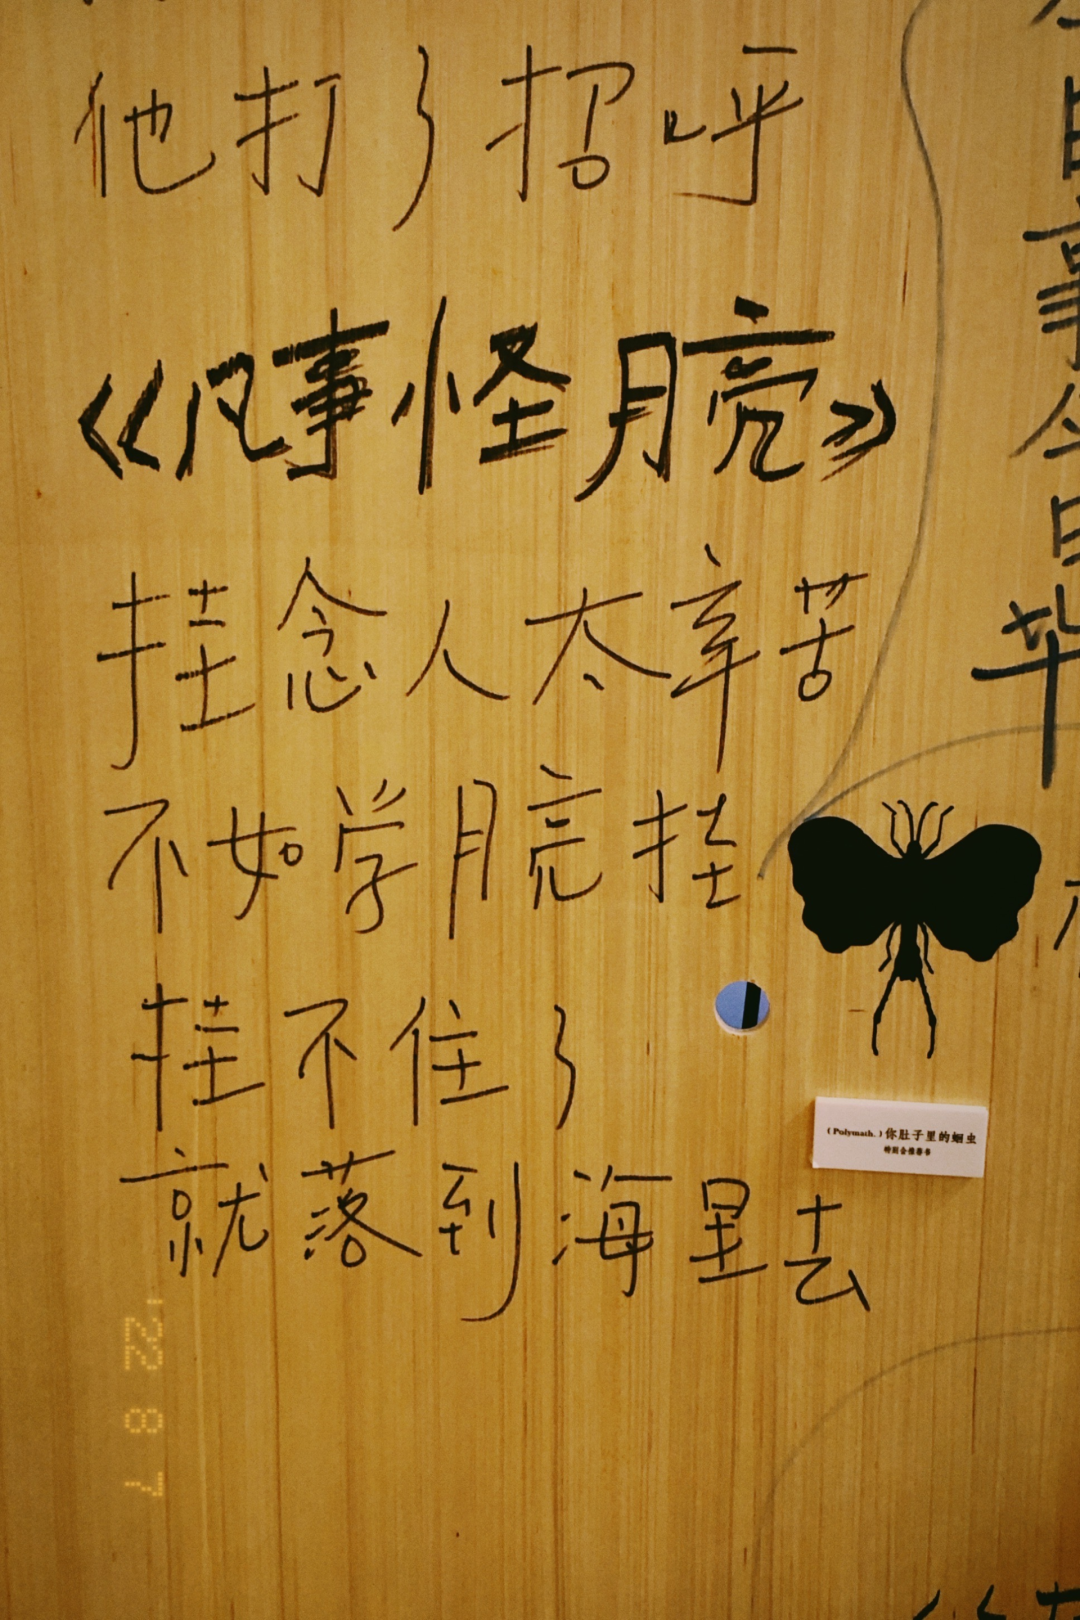 他打了招呼
《凡事怪月亮》
挂念人太辛苦
不如学月亮挂
挂不住了
就落到海里去
日事今日毕
(Polymath.)你肚子里的蛔虫
特别合推荐书
'22 8 7